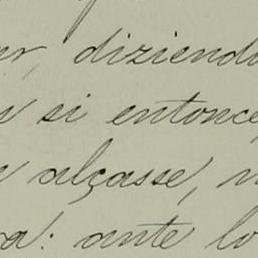 diziendo
si entonce
alçasse,
a: ante lo